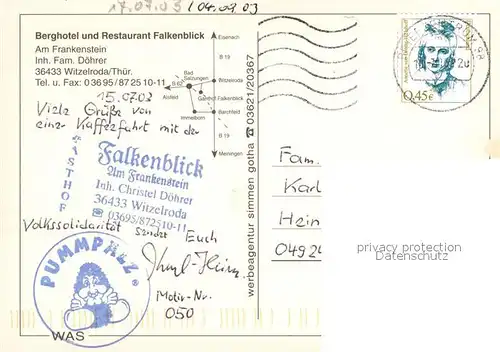 17.07.03 / 04.09.03
Berghotel und Restaurant Falkenblick
Am Frankenstein
Inh. Fam. Döhrer
36433 Witzelroda/Thür.
Tel. u. Fax: 0 36 95/87 25 10-11
Eisenach
B 19
Bad
Salzungen
Witzelroda
Gasthof Falkenblick
Alsfeld
Barchfeld
Immelborn
B 19
Meiningen
15.07.03
Viele Grüße von
einer Kaffeefahrt mit der
GASTHOF
Falkenblick
Am Frankenstein
Inh. Christel Döhrer
36433 Witzelroda
☎ 03695/872510-11
Volkssolidarität sendet Euch
PUMMPÄLZ ®
WAS
Motiv-Nr.
050
werbeagentur simmen gotha ☎ 03621/20367
0,45€
Fam.
Karl
Hein
0492
privacy protection
Datenschutz